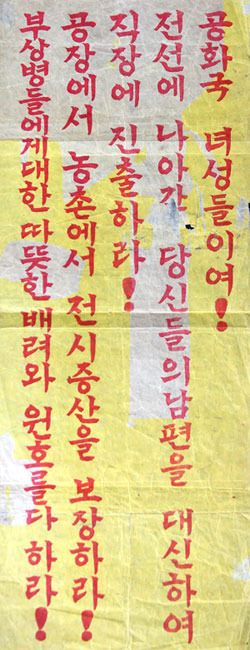 공화국 녀성들이여!
전선에 나아간 당신들의남편을 대신하여
직장에 진출하라!
공장에서 농촌에서 전시증산을 보장하라!
부상병들에게대한따뜻한배려와 원호를다하라!